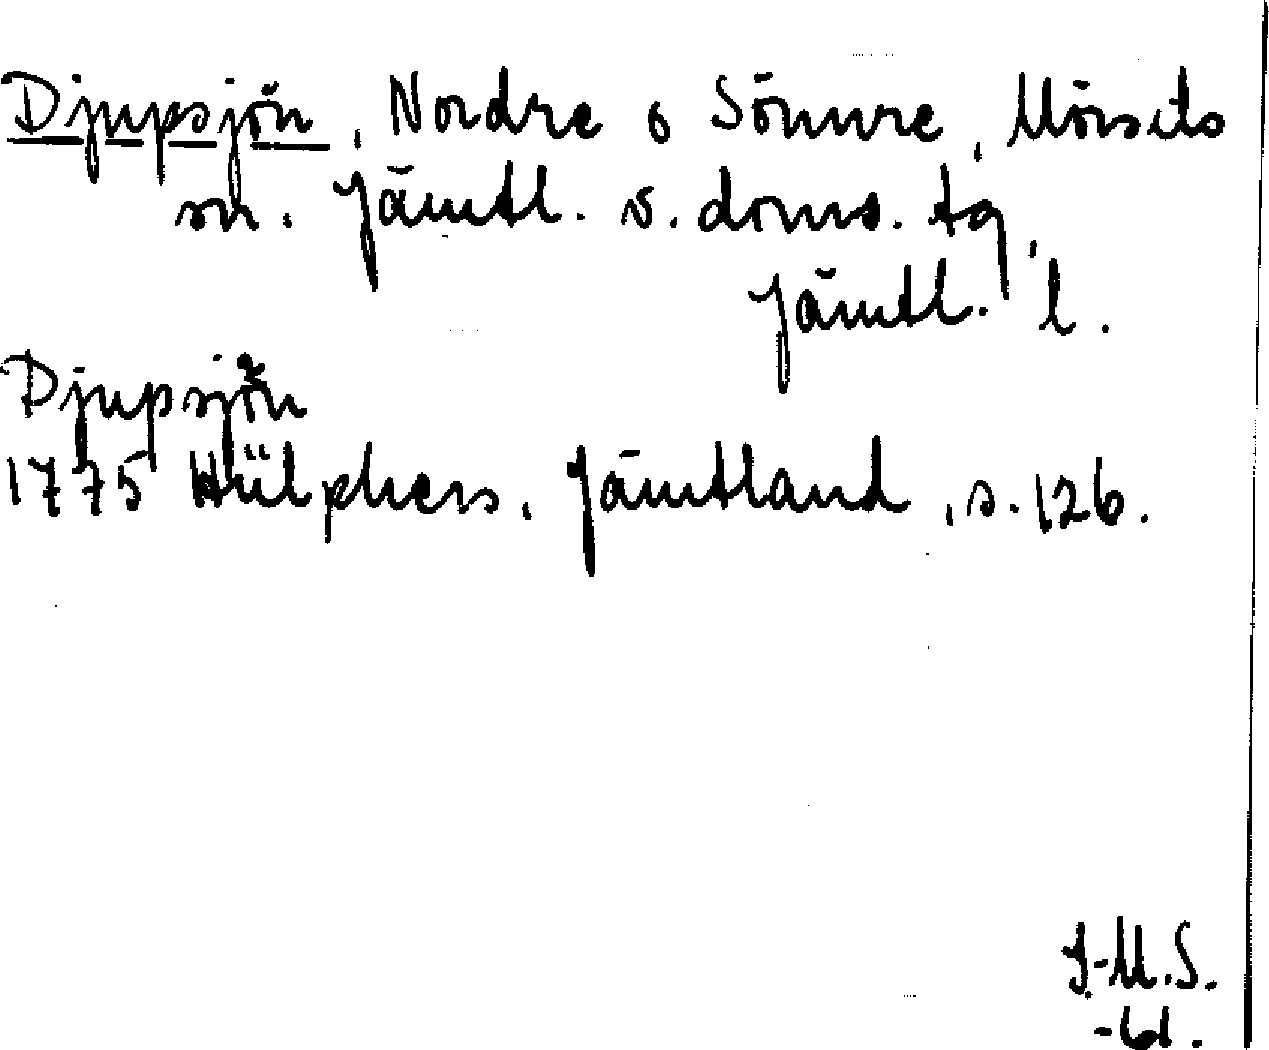 Djupsjön, Nordre o Sönnre, Mörsils
sn. Jämtl. v. doms. tg,
Jämtl. l.
Djupsjön
1775 Hülphers, Jämtland, s. 126.
I.-M.S.
-61.